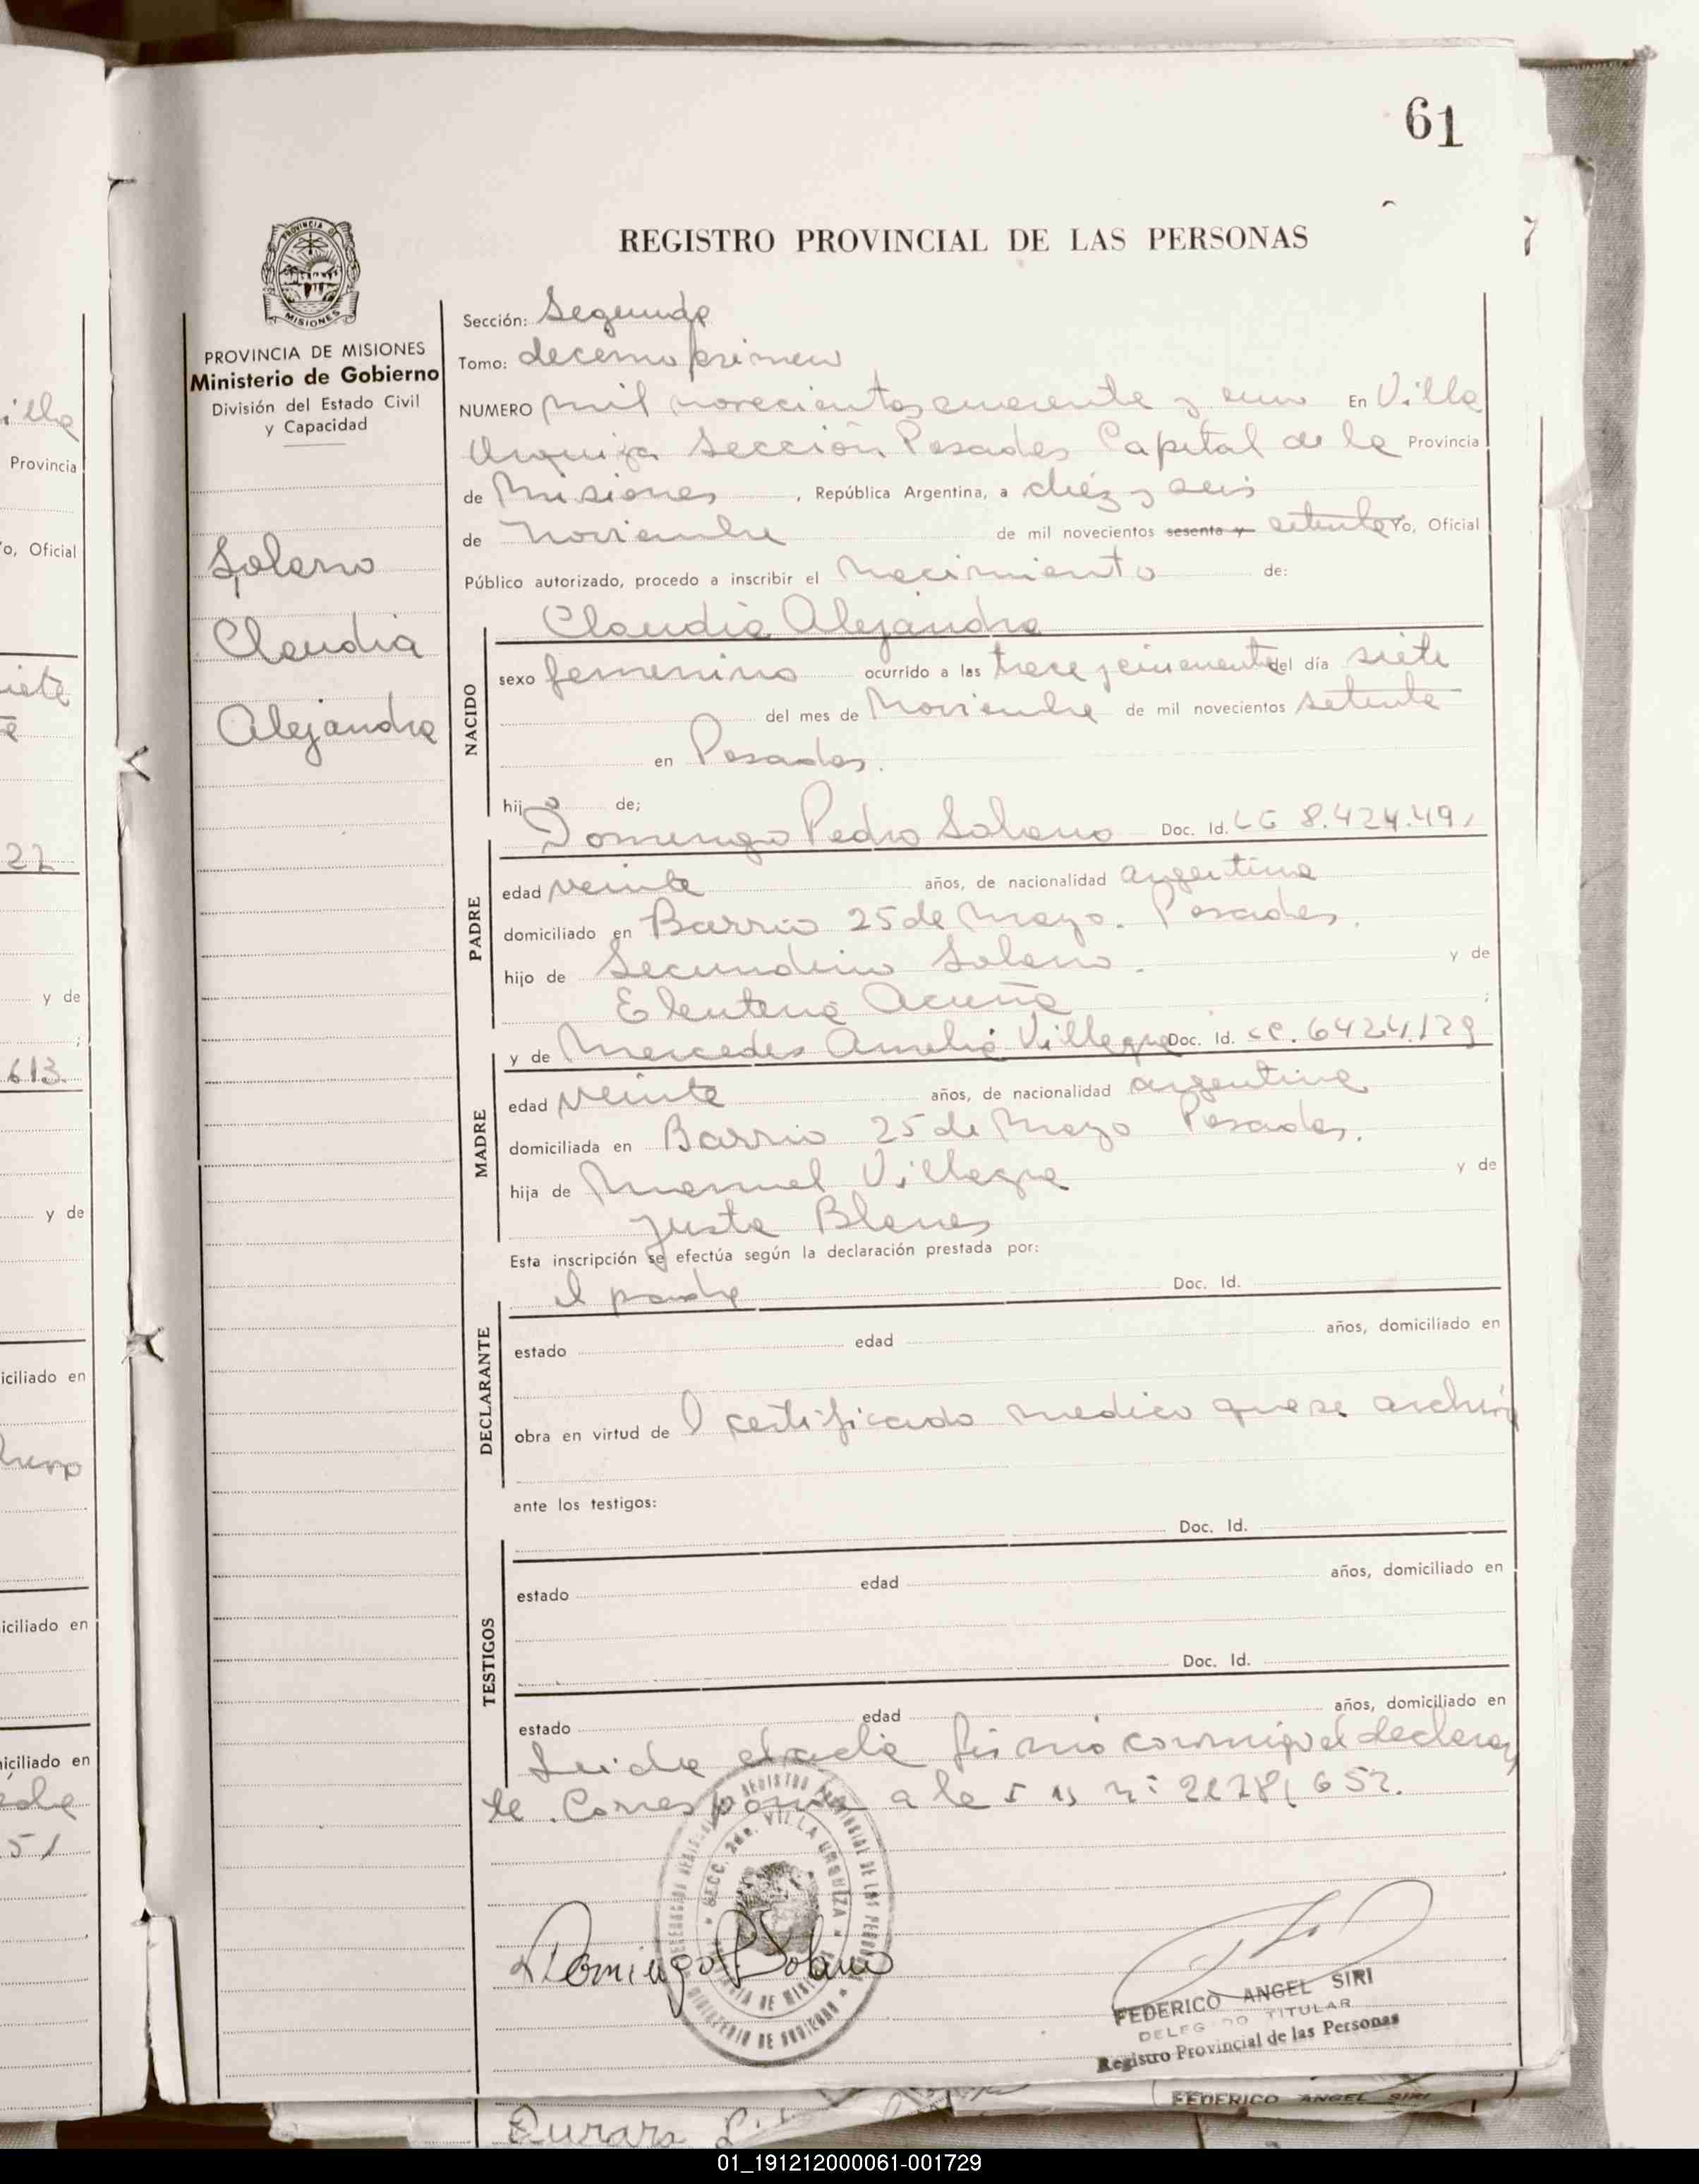 61
REGISTRO PROVINCIAL DE LAS PERSONAS
MISIONES
PROVINCIA DE MISIONES
Ministerio de Gobierno
División del Estado Civil
y Capacidad
Solano
Claudia
Alejandra
Sección: Segunda
Tomo: decimo primero
NUMERO mil novecientos cuarenta y uno En Villa
Urquiza Sección Posadas Capital de la Provincia
de Misiones, República Argentina, a diéz y seis
de Noviembre de mil novecientos sesenta y setenta Yo, Oficial
Público autorizado, procedo a inscribir el Nacimiento de:
Claudia Alejandra
NACIDO
sexo femenino ocurrido a las trece y cincuenta del día siete
del mes de Noviembre de mil novecientos setenta
en Posadas.
hija de;
Domingo Pedro Solano Doc. Id. LE 8.424.491
PADRE
edad veinte años, de nacionalidad argentina
domiciliado en Barrio 25 de Mayo. Posadas.
hijo de Secundino Solano. y de
Eleuteria Acuña ;
y de Mercedes Amelia Villagra Doc. Id. LC. 6424.129
MADRE
edad veinte años, de nacionalidad argentina
domiciliada en Barrio 25 de Mayo Posadas.
hija de Manuel Villagra y de
Justa Blanes
Esta inscripción se efectúa según la declaración prestada por:
el padre Doc. Id.
DECLARANTE
estado edad años, domiciliado en
obra en virtud de l certificado medico que se archiva
ante los testigos:
Doc. Id.
TESTIGOS
estado edad años, domiciliado en
Doc. Id.
estado edad años, domiciliado en
Leida el acta firmó conmigo el declaran
te. Corresponde a la
SECC. 2da. VILLA URQUIZA
REGISTRO PROVINCIAL DE LAS PERSONAS
MINISTERIO DE GOBIERNO
Domingo P Solano
FEDERICO ANGEL SIRI
DELEGADO TITULAR
Registro Provincial de las Personas
FEDERICO ANGEL SIRI
illa
Provincia
Yo, Oficial
siete
22
y de
613
y de
iciliado en
iciliado en
iciliado en
51
01_191212000061-001729